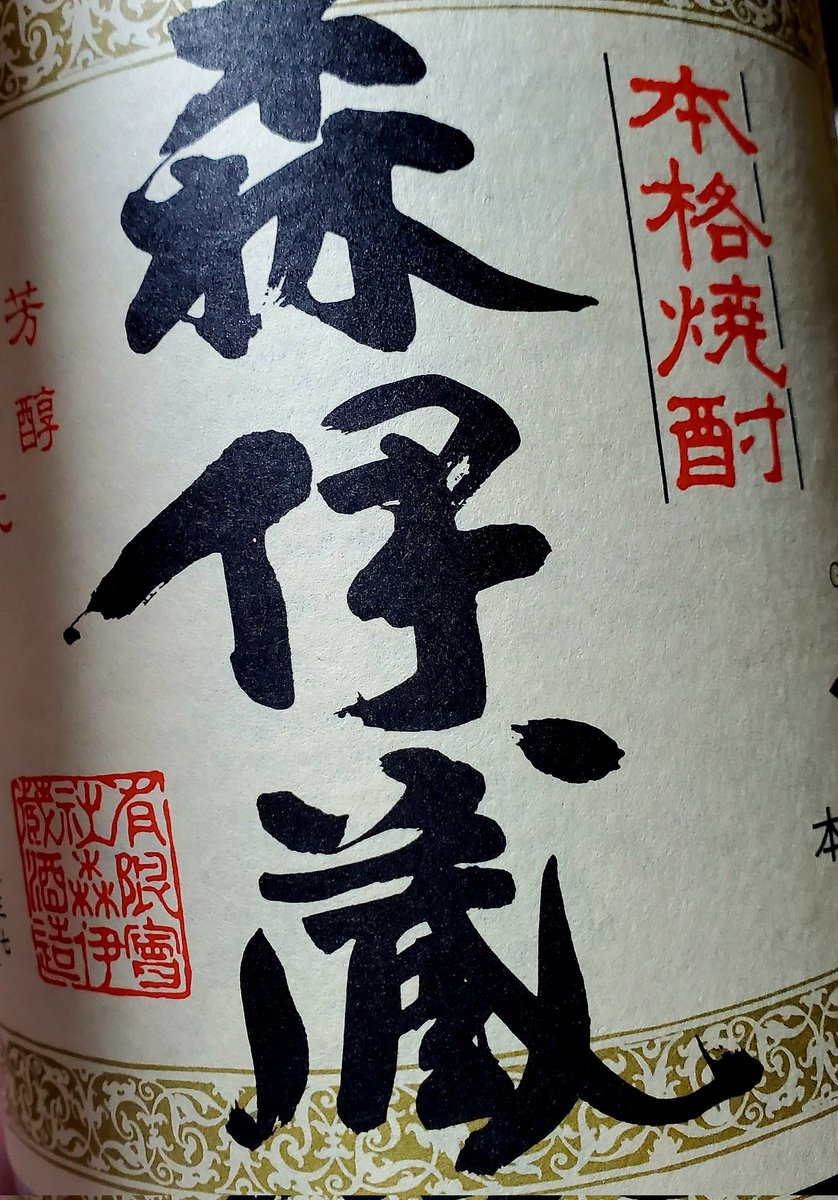 本格焼酎
森伊蔵
芳醇
有限會
社森伊
蔵酒造
本